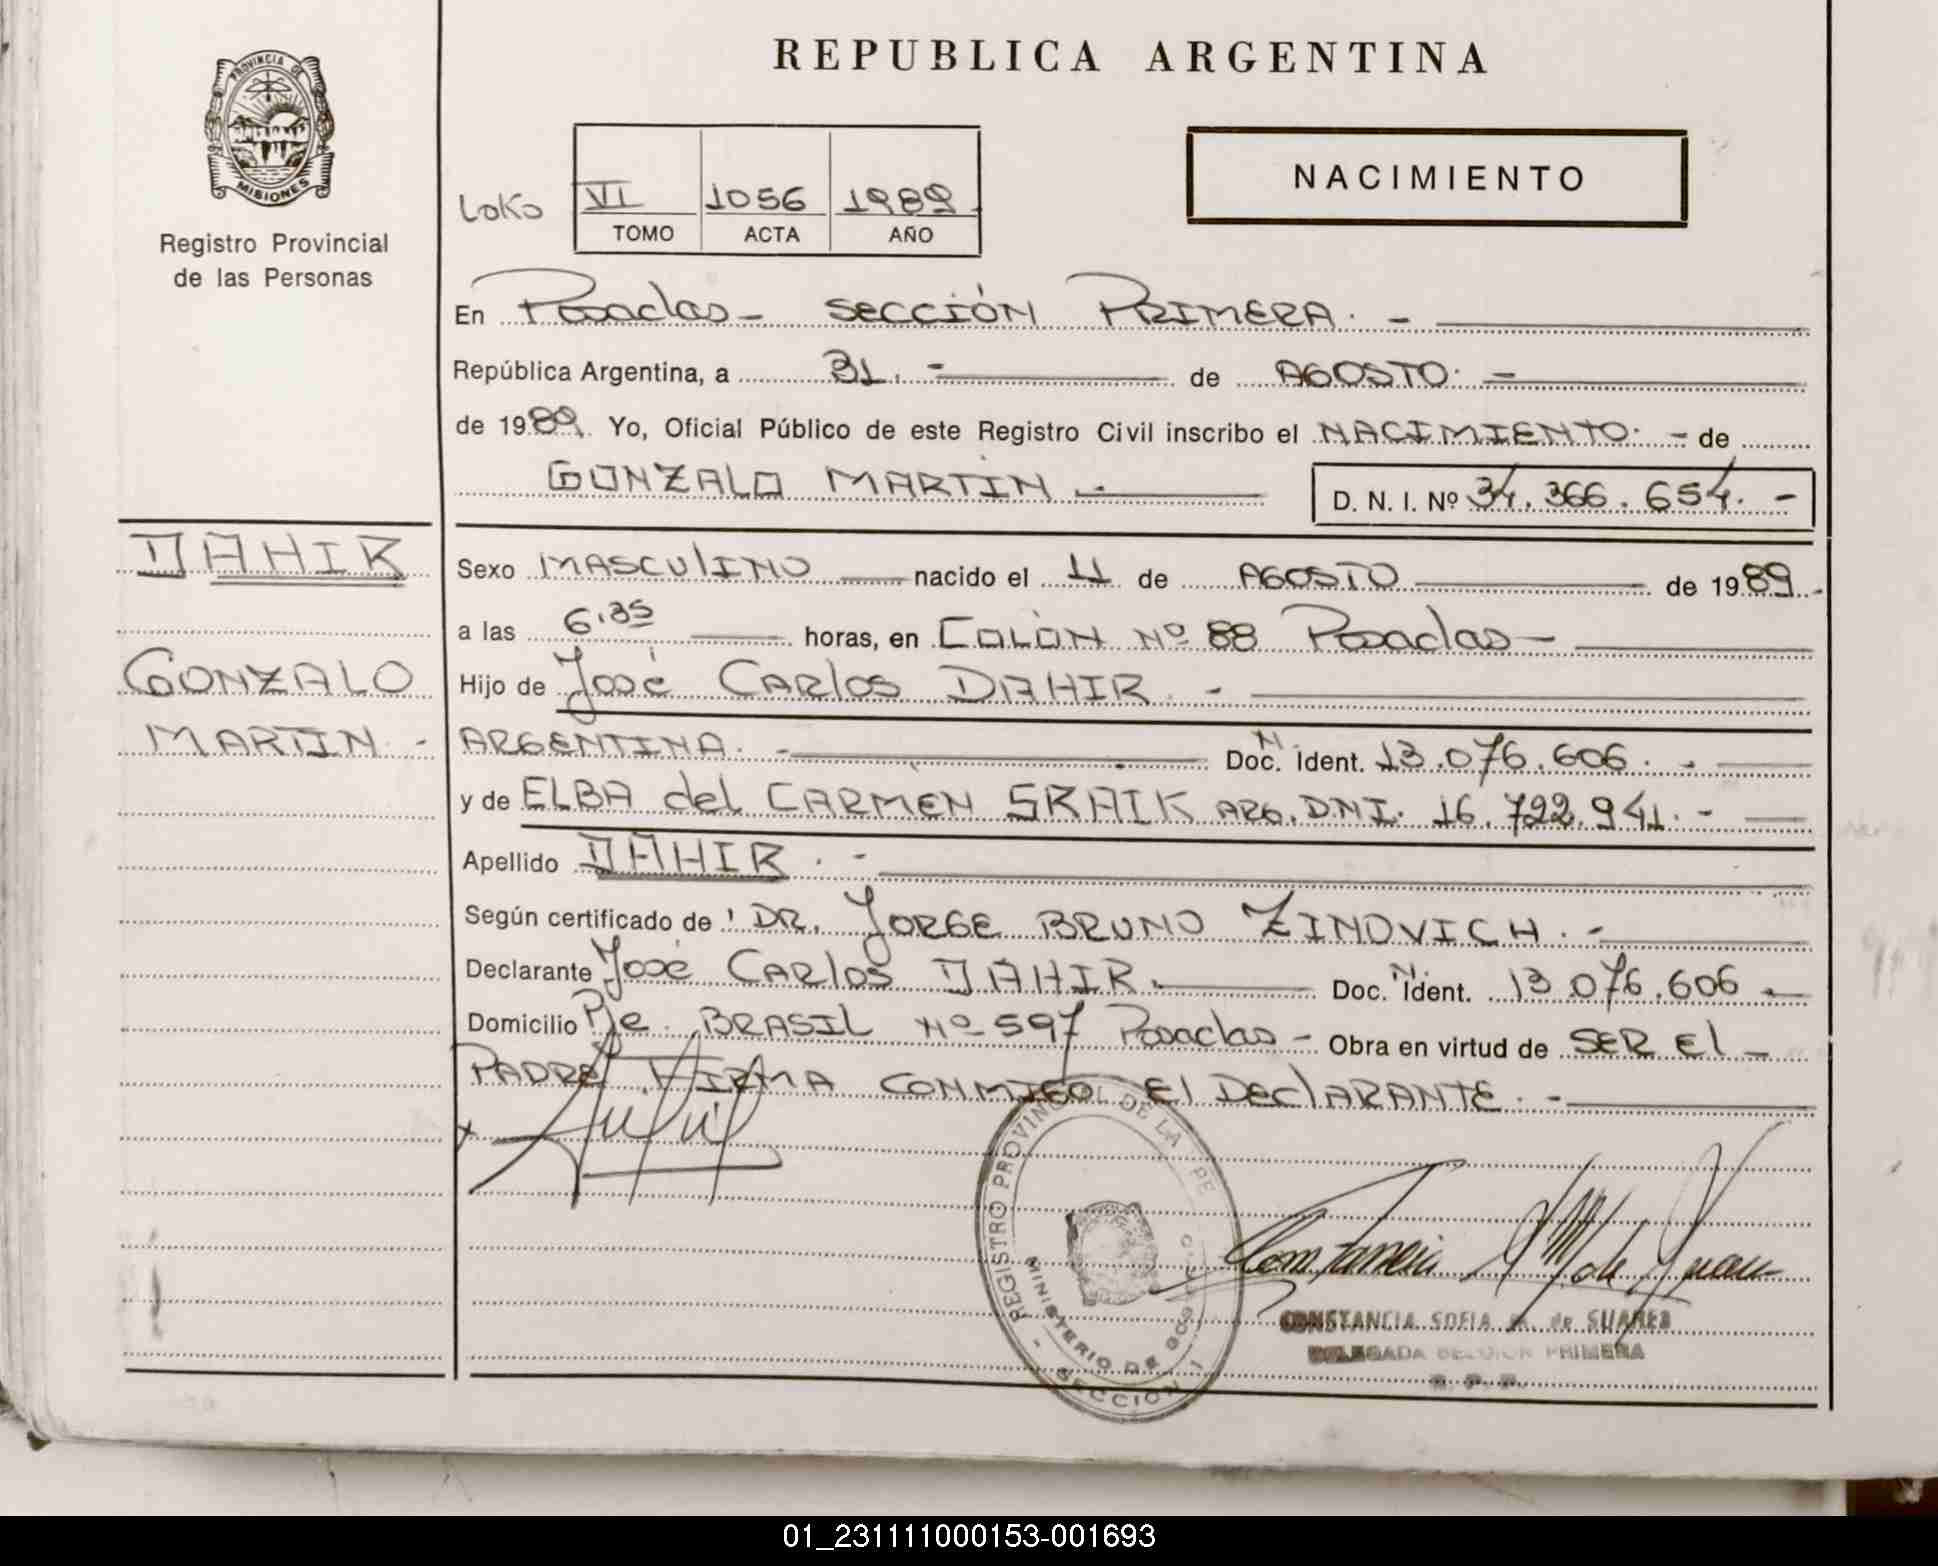 PROVINCIA DE
MISIONES
Registro Provincial
de las Personas
REPUBLICA ARGENTINA
NACIMIENTO
LoKo
VI 1056 1989
TOMO ACTA AÑO
En Posadas - SECCIÓN PRIMERA. -
República Argentina, a 31. - de AGOSTO. -
de 1989. Yo, Oficial Público de este Registro Civil inscribo el NACIMIENTO. - de
GONZALO MARTIN. - D. N. I. Nº 34.366.654. -
DAHIR
GONZALO
MARTIN. -
Sexo MASCULINO nacido el 11 de AGOSTO de 1989.-
a las 6.35 horas, en COLÓN Nº 88 Posadas -
Hijo de José CARlos DAHIR. -
ARGENTINA. - Doc. N. Ident. 13.076.606. -
y de ELBA del CARMEN SKAIK ARG. D.N.I. 16.722.941. -
Apellido DAHIR. -
Según certificado de: DR. JORGE BRUNO ZINOVICH. -
Declarante José CARlos DAHIR. Doc. N. Ident. 13.076.606 -
Domicilio Pje. BRASIL Nº 597 Posadas - Obra en virtud de SER El -
PADRE FIRMA CONMIGO El DEClARANTE. -
REGISTRO PROVINCIAL DE LA PE
MINISTERIO DE GOB
SECCION 1
CONSTANCIA SOFIA M. de SUAREZ
DELEGADA SECCION PRIMERA
R. P. P.
01_231111000153-001693